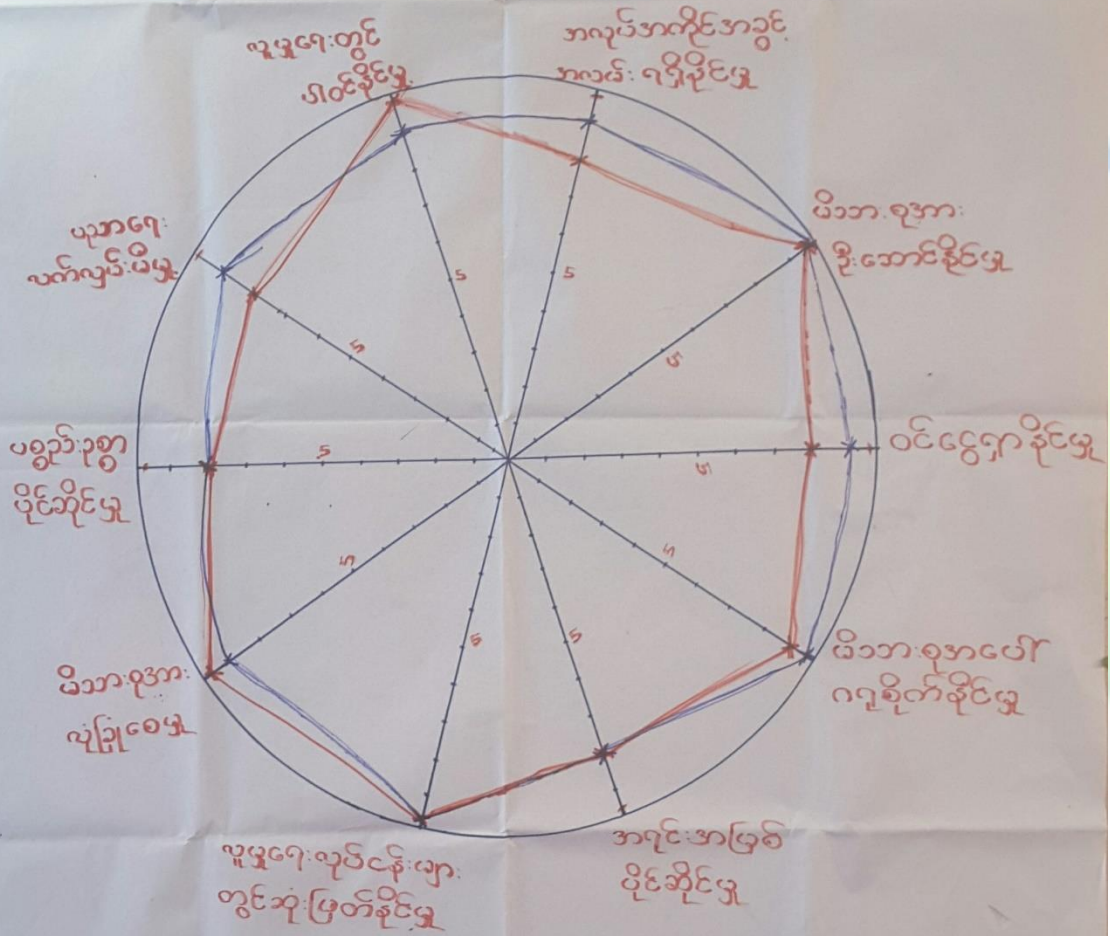 လူမှုရေးတွင်
ပါဝင်နိုင်မှု
အလုပ်အကိုင်အခွင့်
အလမ်းရရှိနိုင်မှု
မိသားစုအား
ဦးဆောင်နိုင်မှု
ဝင်ငွေရှာနိုင်မှု
မိသားစုအပေါ်
ဂရုစိုက်နိုင်မှု
အရင်းအမြစ်
ပိုင်ဆိုင်မှု
လူမှုရေးလုပ်ငန်းများ
တွင်ဆုံးဖြတ်နိုင်မှု
မိသားစုအား
လုံခြုံစေမှု
ပစ္စည်းဥစ္စာ
ပိုင်ဆိုင်မှု
ပညာရေး
လက်လှမ်းမီမှု
5
5
5
5
5
5
5
5
5
5